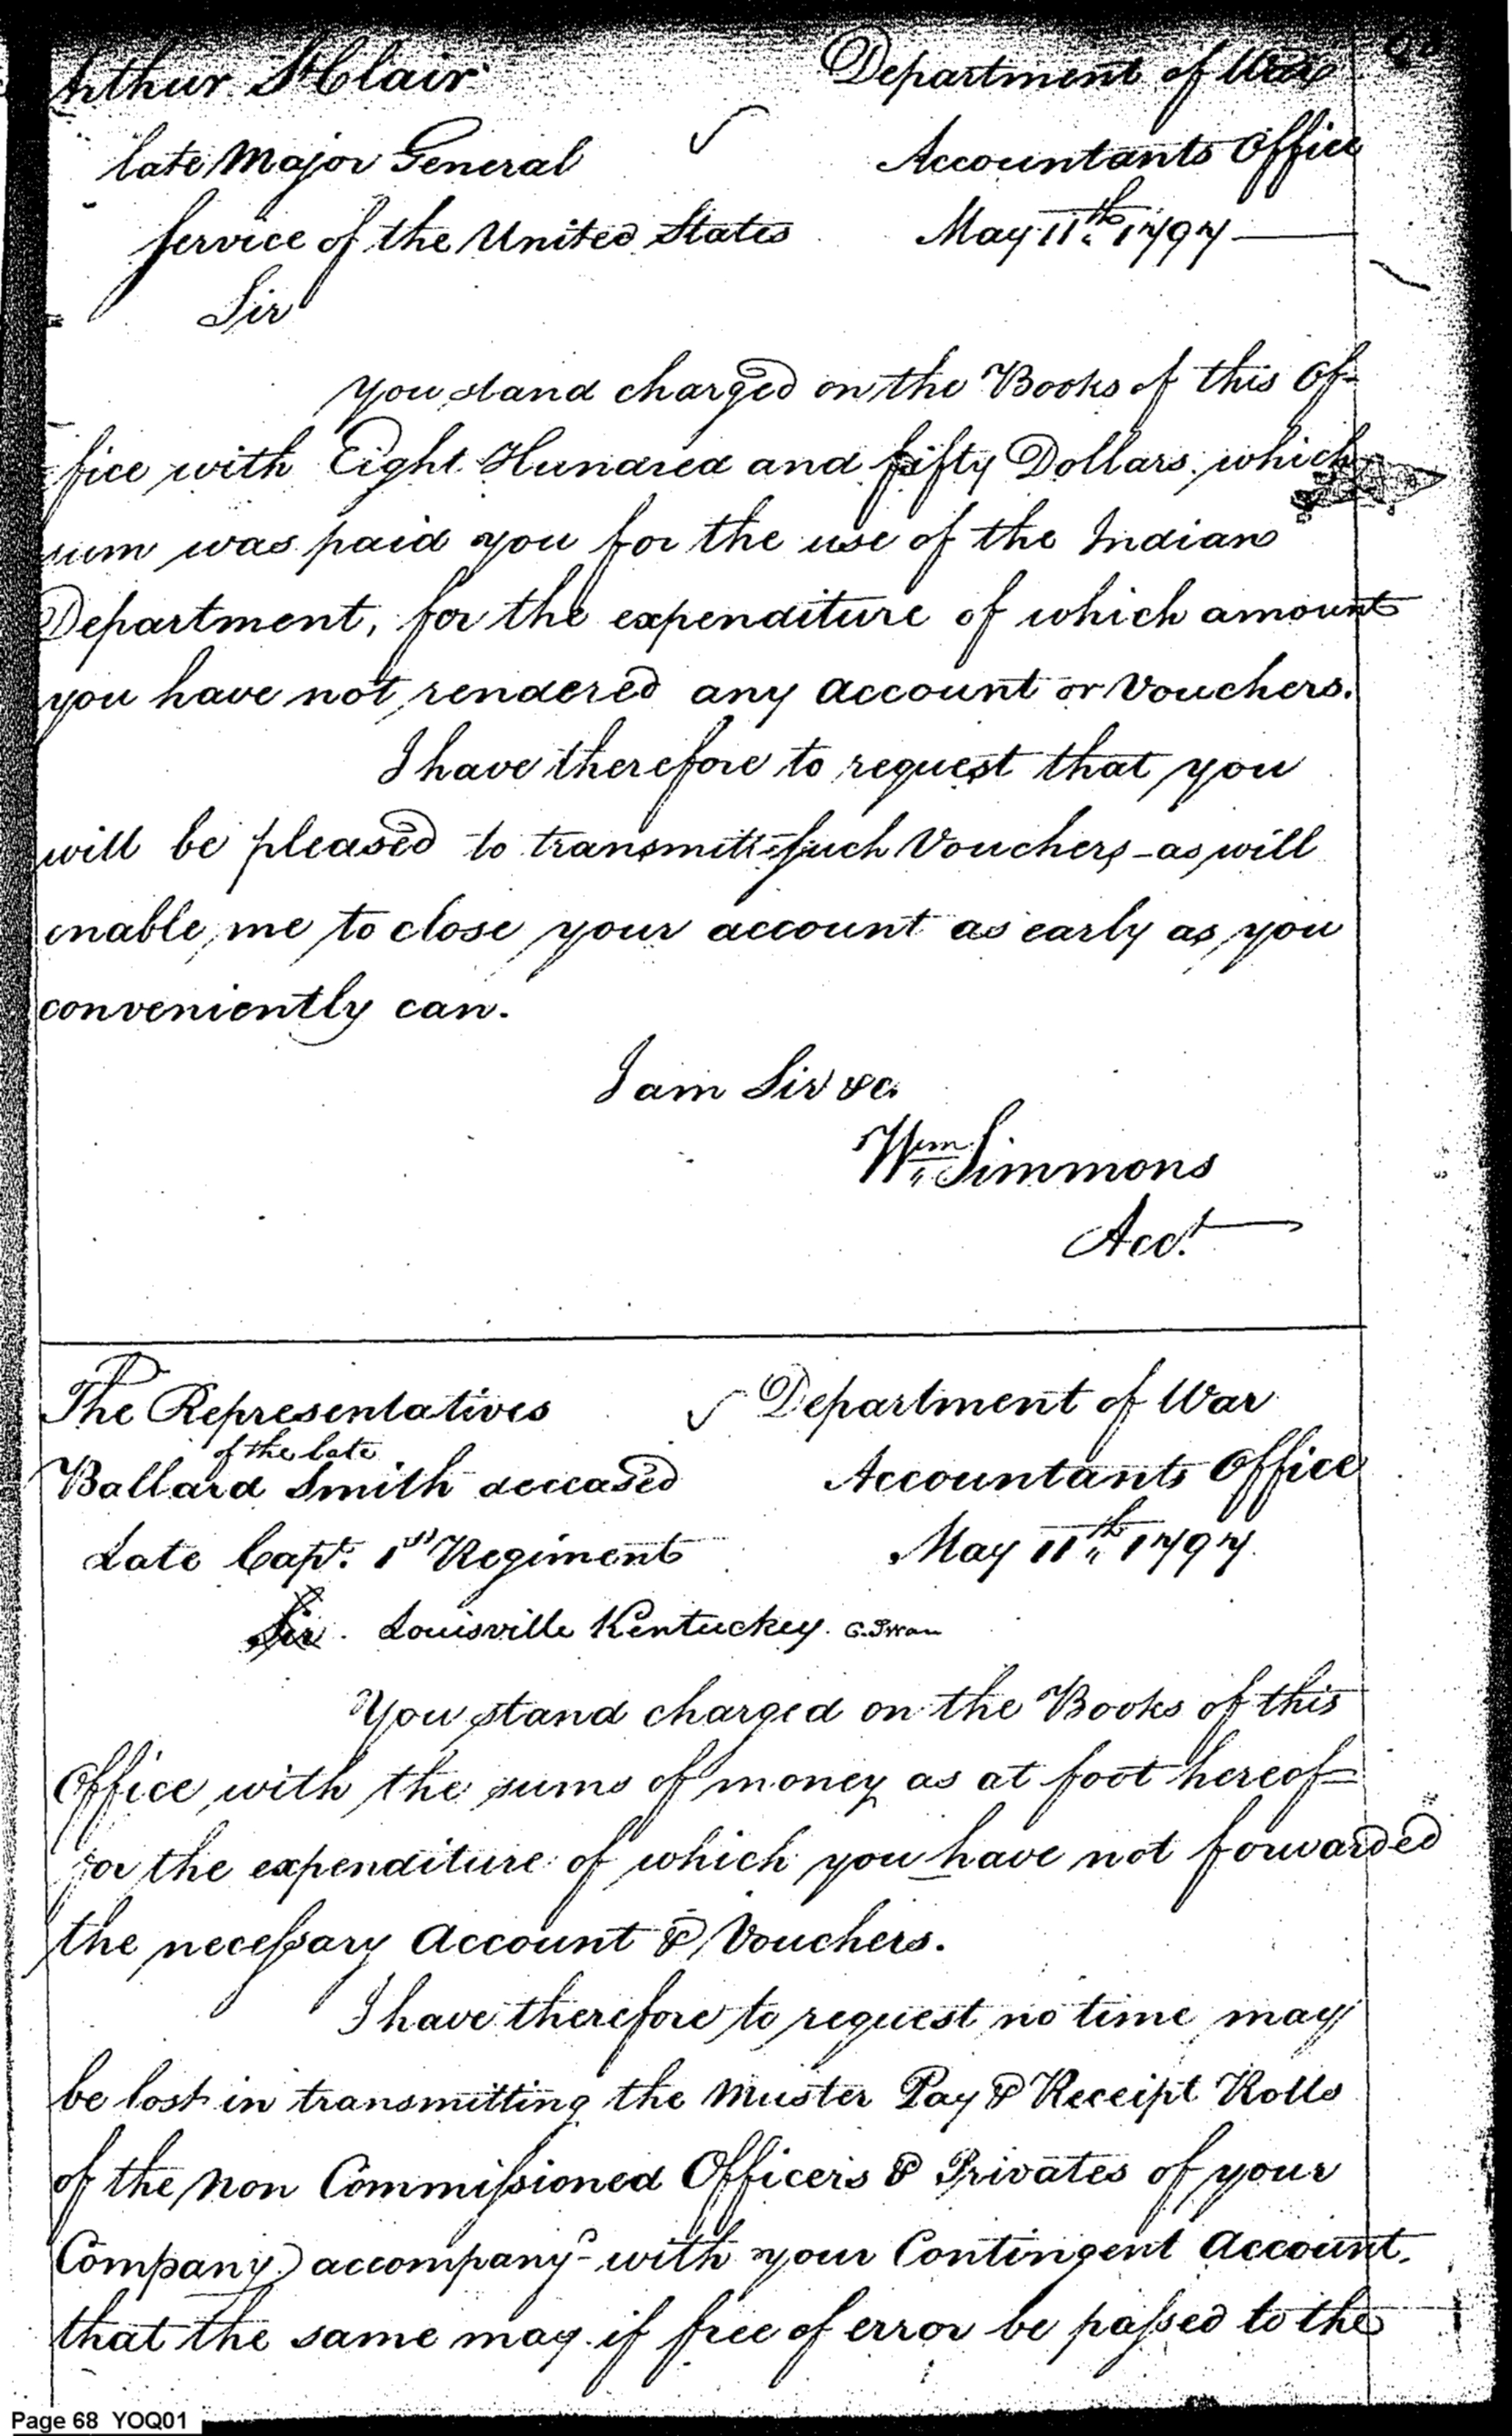 Arthur St Clair Department of War
late Major General Accountants Office
Service of the United States May 11th 1797
Sir
you stand charged on the Books of this Of-
fice with Eight Hundred and fifty Dollars, which
sum was paid you for the use of the Indian
Department, for the expenditure of which amount
you have not rendered any account or Vouchers.
I have therefore to request that you
will be pleased to transmit such Vouchers - as will
enable me to close your account as early as you
conveniently can.
I am Sir &c.
Wm Simmons
Acct.
The Representatives Department of War
of the late
Ballard Smith deceased Accountants Office
Late Capt. 1st Regiment May 11th 1797.
Sir. Louisville Kentuckey. C. Swan
You stand charged on the Books of this
Office with the sums of money as at foot hereof
for the expenditure of which you have not forwarded
the necessary Account & Vouchers.
I have therefore to request no time may
be lost in transmitting the Muster Pay & Receipt Rolls
of the Non Commissioned Officers & Privates of your
Company accompany'd with your Contingent Account,
that the same may if free of error be passed to the
Page 68 YOQ01